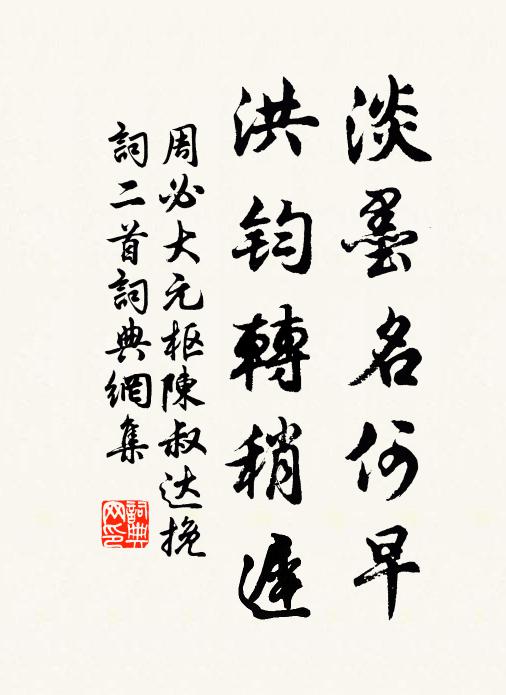 淡墨名何早
洪钧轉稍遲
周必大元枢陳叔达挽
詞二首詞典網集
詞典网印